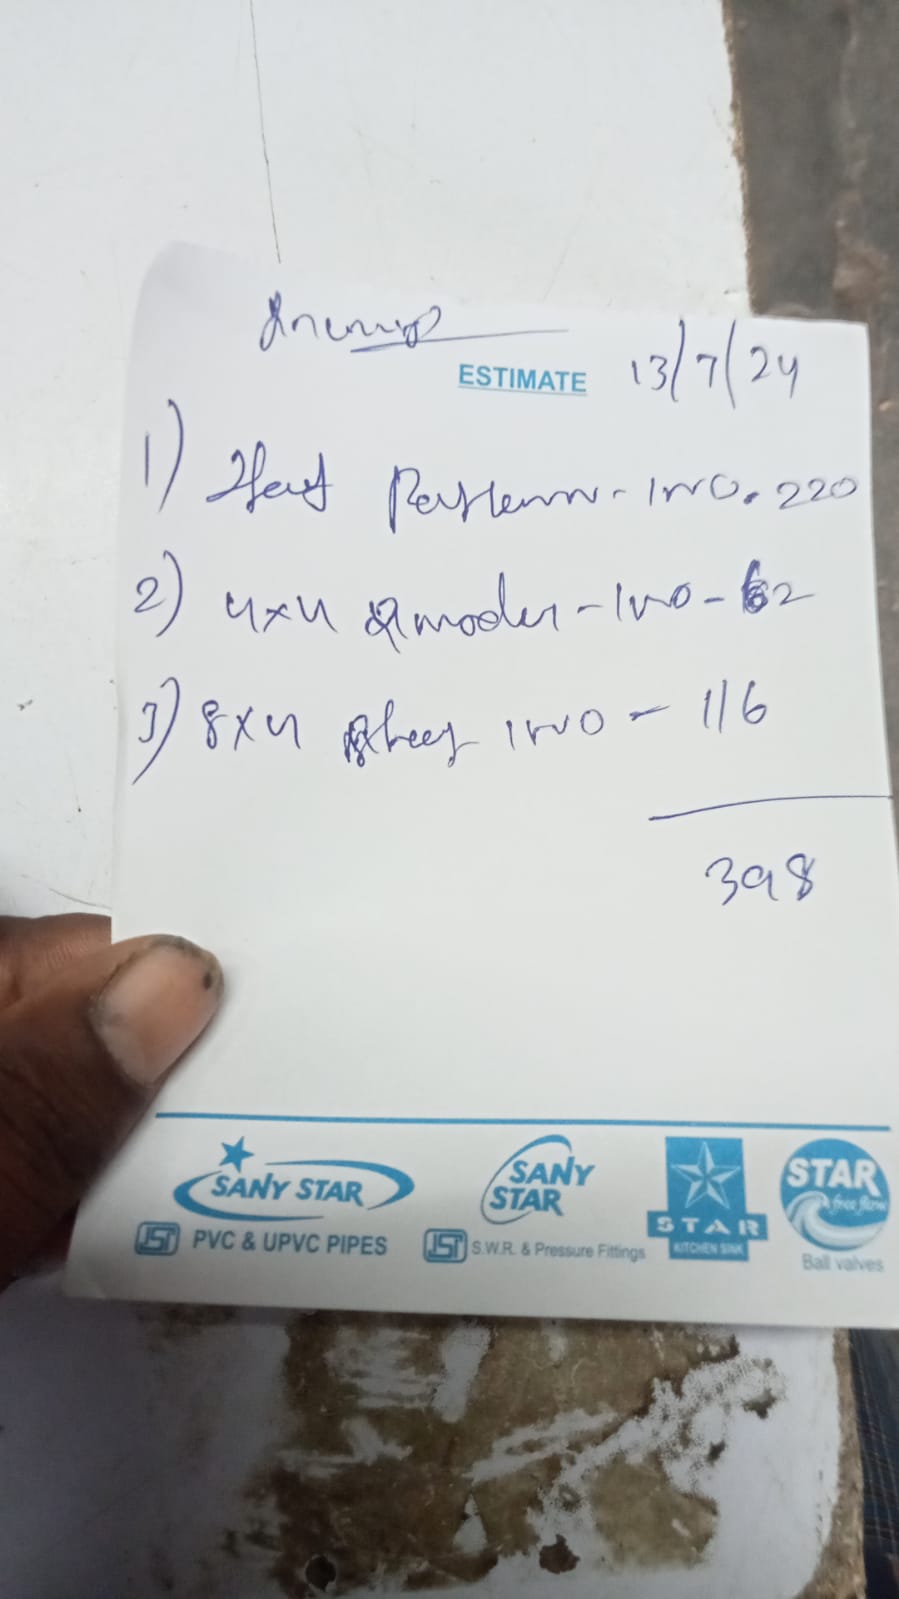 ESTIMATE 13/7/24
1) - 1 NO. 220
2) 4x4 moder - 1 NO - 62
3) 8x4 sheet 1 NO - 116
398
SANY STAR
ISI PVC & UPVC PIPES
SANY STAR
ISI S.W.R. & Pressure Fittings
STAR
KITCHEN SINK
STAR
A free flow
Ball valves